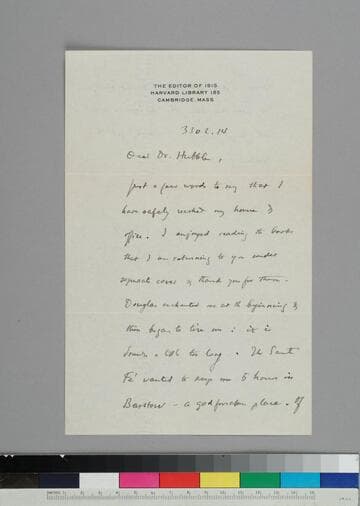 THE EDITOR OF ISIS
HARVARD LIBRARY 185
CAMBRIDGE, MASS.
Dear Dr. Hubble,
Just a few words to say that I
have safely reached my house &
office. I enjoyed reading the books
that I am returning to you under
separate cover & thank you for them.
Douglas enchanted me at the beginning &
then began to tire me : it is
a little too long. The Santa
Fé wanted to keep me 5 hours in
Barstow – a godforsaken place. If